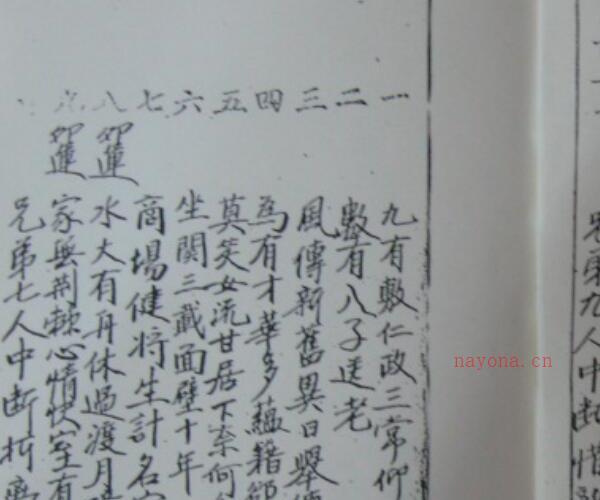 一 九有敷仁政三常仰
二 數有八子送老
三 風傳新舊異日舉
四 為有才華多蘊籍
五 莫笑女流甘居下奈何
六 坐關三載面壁十年
七 商場健將生計名
八 卯運 水大有舟休過渡月
九 卯運 家無荆棘心情快室有
兄弟七人中斷折
兄弟九人中斷惜
nayona.cn